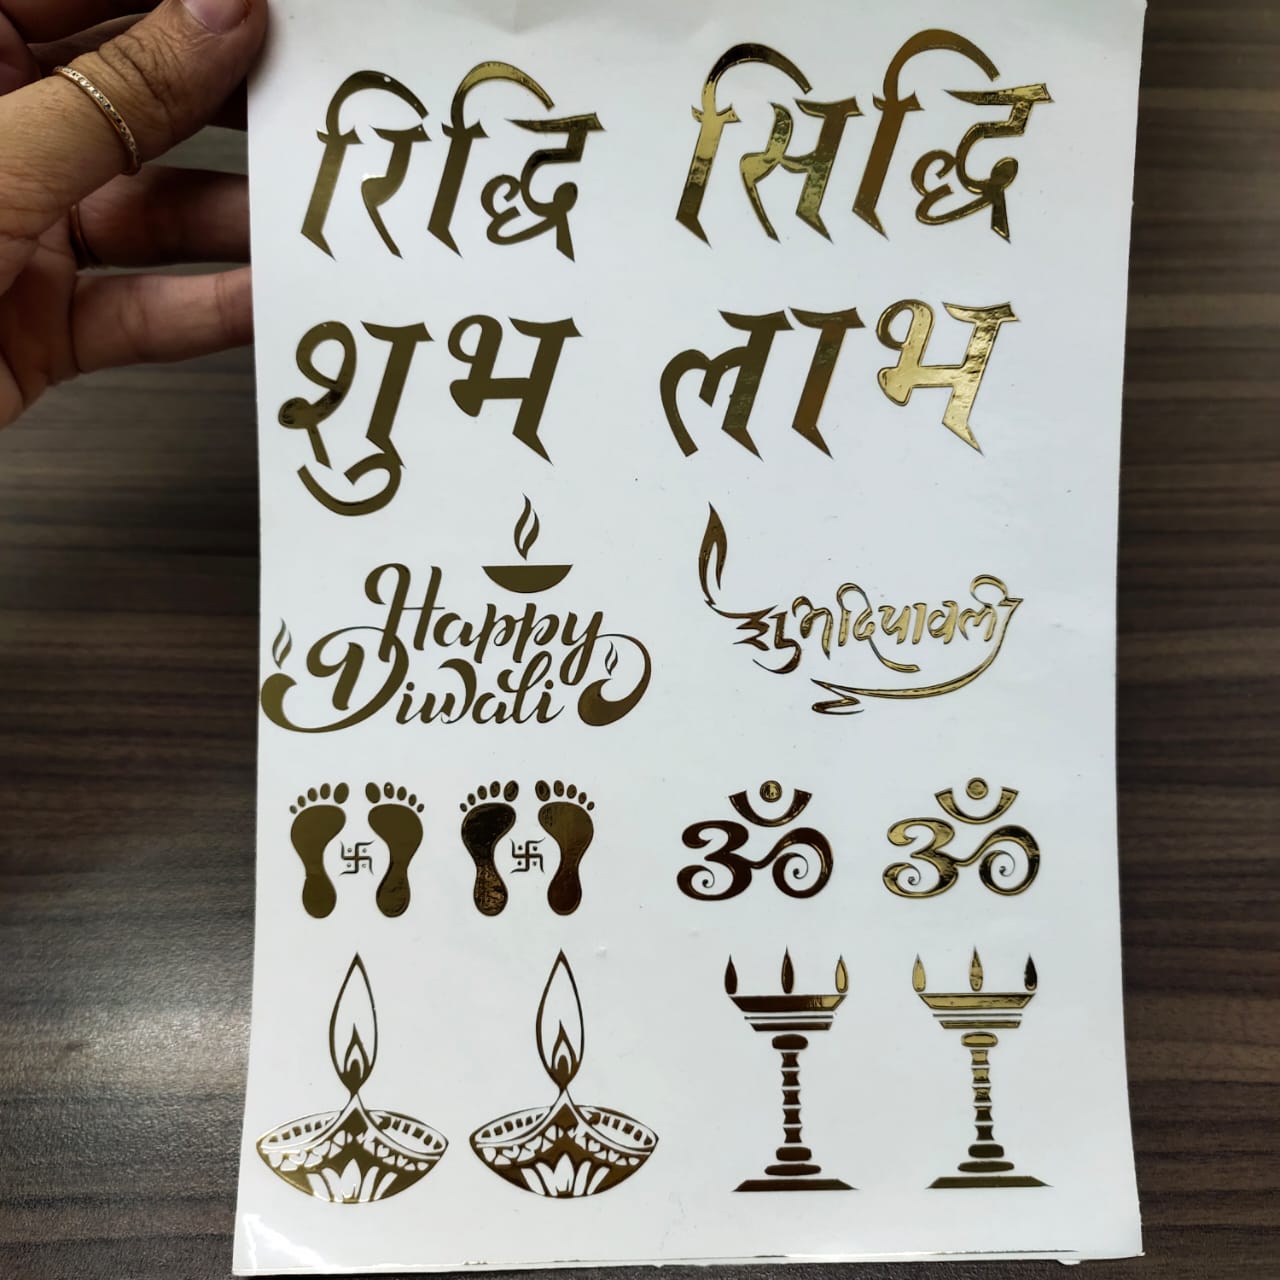 रिद्धि सिद्धि
शुभ लाभ
Happy
Diwali
शुभ दिपावली
ॐ ॐ